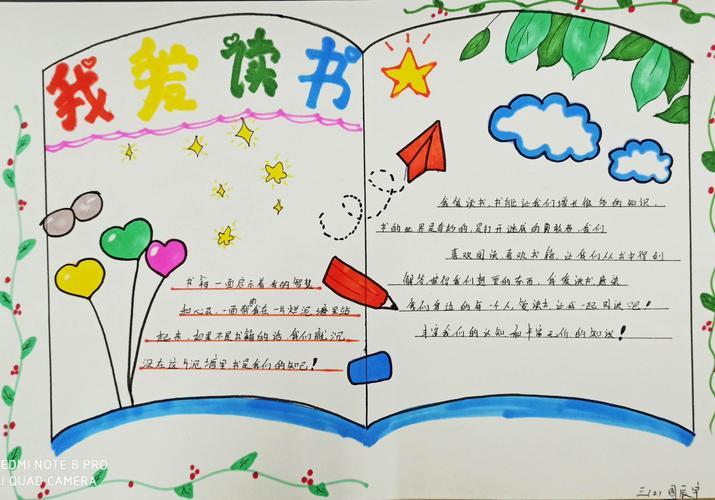 我爱读书
书籍一面启示着我的智慧
和心灵,一面帮我在一片烂泥塘里站
起来,如果不是书籍的话,我们就沉
没在这片泥塘里,书是我们的知己!
我爱读书,书能让我们增长很多的知识,
书的世界是奇妙的,是打开迷
我们
喜欢阅读,喜欢书籍,让我们从书中得到
解答
我们想要的东西,我爱读书
我们身边的每一个人,爱读书
一起阅读吧!
丰富我们的认知
的知识!
三(2)周辰宇
REDMI NOTE 8 PRO
AI QUAD CAMERA